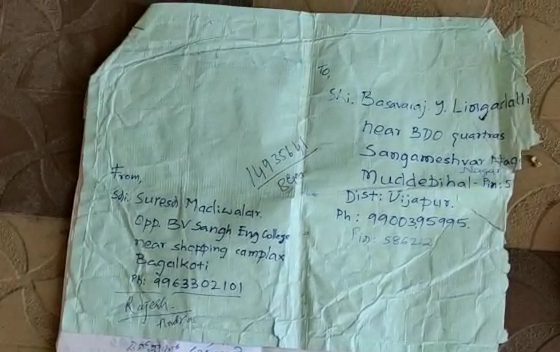 To,
Shi. Basavaraj. Y. Lingadalli
near BDO quartras
Sangameshvar Nag
Nagar
Muddebihal - Pin: 5
Dist: Vijapur.
Ph: 9900395995.
Pin: 586212
1493564
From,
Shi. Suresh Madiwalar.
Opp. BV Sangh Eng College
near shopping camplax
Bagalkoti
Ph: 9963302101
Rajesh